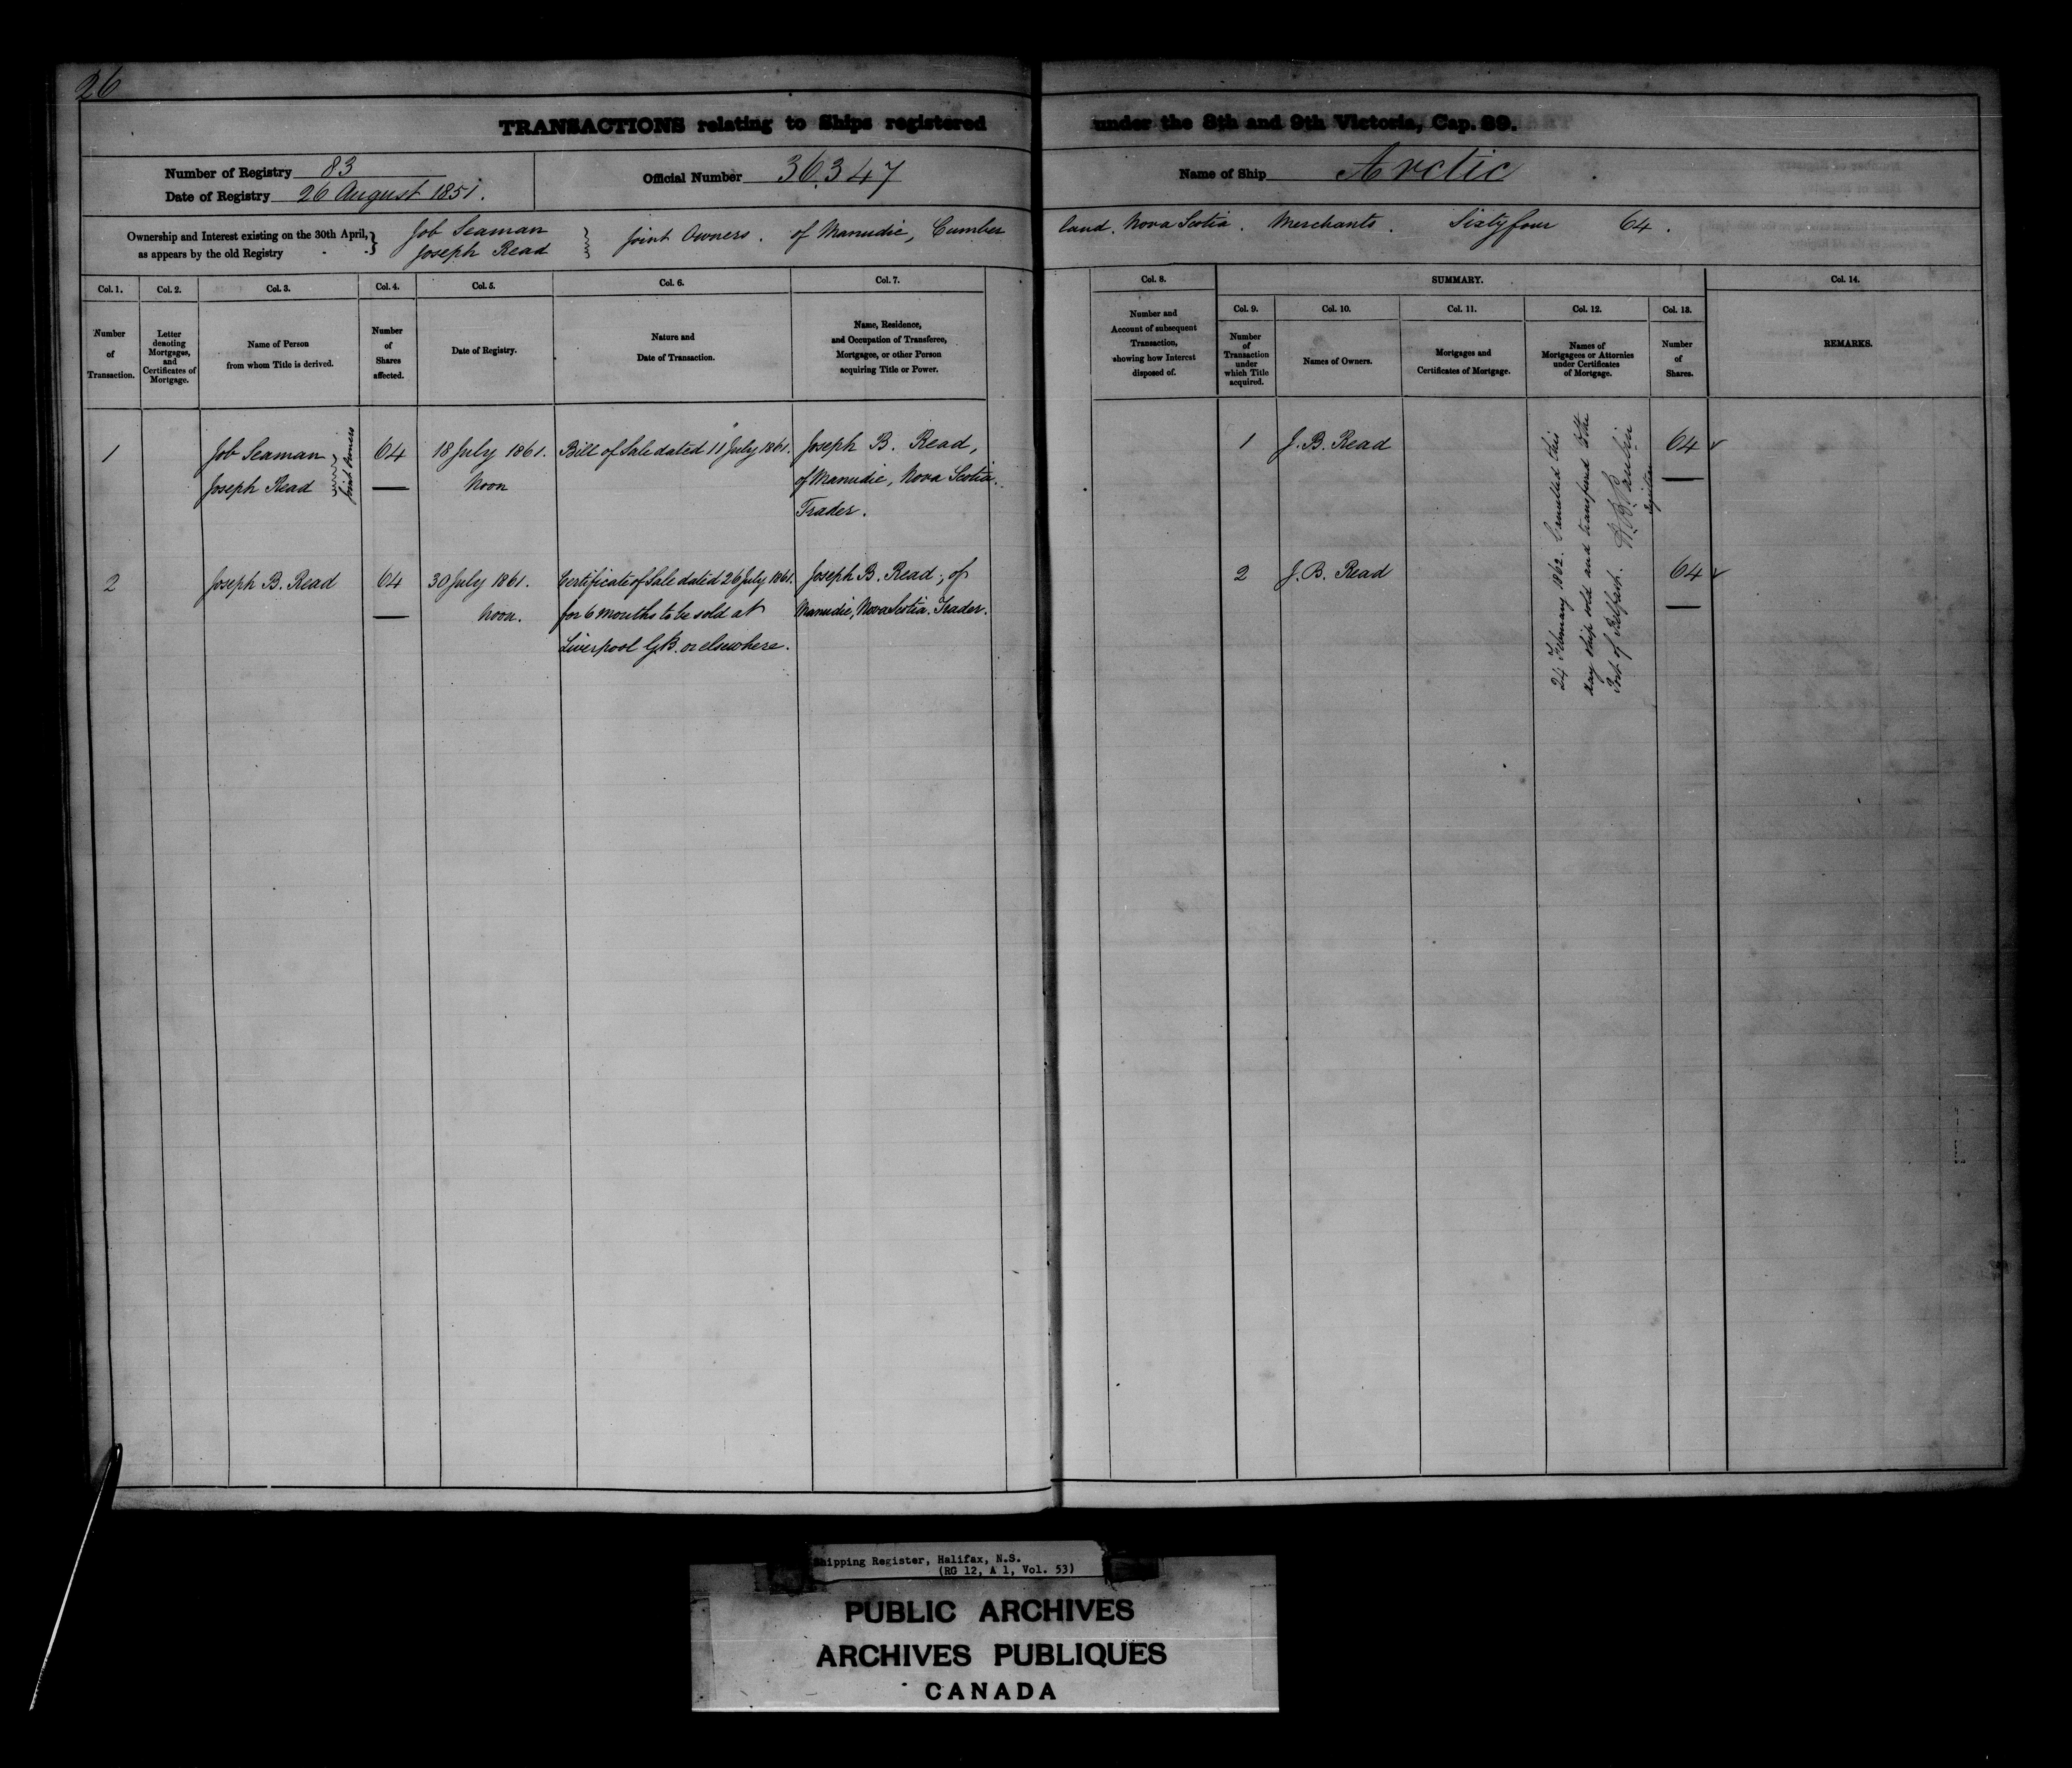 26
TRANSACTIONS relating to Ships registered under the 8th and 9th Victoria, Cap. 89.
Number of Registry 83
Date of Registry 26 August 1851.
Official Number 36.347
Name of Ship Arctic
Ownership and Interest existing on the 30th April, as appears by the old Registry
Job Seaman
Joseph Read
Joint Owners. of Manudie, Cumberland. Nova Scotia. Merchants. Sixty four 64.
Col. 1. Col. 2. Col. 3. Col. 4. Col. 5. Col. 6. Col. 7. Col. 8. SUMMARY. Col. 14.
Col. 9. Col. 10. Col. 11. Col. 12. Col. 13.
Number of Transaction.
Letter denoting Mortgages, and Certificates of Mortgage.
Name of Person from whom Title is derived.
Number of Shares affected.
Date of Registry.
Nature and Date of Transaction.
Name, Residence, and Occupation of Transferee, Mortgagee, or other Person acquiring Title or Power.
Number and Account of subsequent Transaction, showing how Interest disposed of.
Number of Transaction under which Title acquired.
Names of Owners.
Mortgages and Certificates of Mortgage.
Names of Mortgagees or Attornies under Certificates of Mortgage.
Number of Shares.
REMARKS.
1
Job Seaman
Joseph Read
Joint Owners
64
18 July 1861.
Noon
Bill of Sale dated 11 July 1861.
Joseph B. Read,
of Manudie, Nova Scotia.
Trader.
1 J. B. Read 64
2
Joseph B. Read
64
30 July 1861.
Noon.
Certificate of Sale dated 26 July 1861.
for 6 months to be sold at
Liverpool G.B. or elsewhere.
Joseph B. Read, of
Manudie, Nova Scotia. Trader.
2 J. B. Read 64
24 February 1862. Cancelled this
day ship sold and transferred to the
Port of Belfast.
Shipping Register, Halifax, N.S.
(RG 12, A 1, Vol. 53)
PUBLIC ARCHIVES
ARCHIVES PUBLIQUES
CANADA